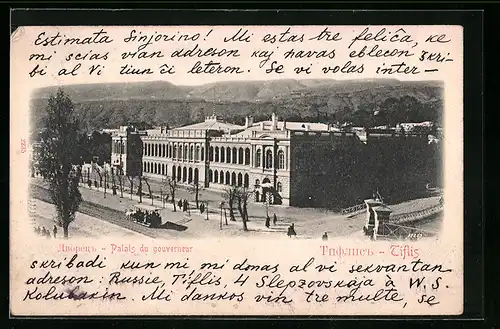 Estimata Sinjorino! Mi estas tre feliĉa, ke
mi scias vian adreson kaj havas eblecon skri-
bi al Vi tiun ĉi leteron. Se vi volas inter-
2235
Дворецъ - Palais du gouverneur
Тифлисъ - Tiflis
skribadi kun mi mi donas al vi sekvantan
adreson: Russie, Tiflis, 4 Slepzovskaja à W. S.
Kolubakin. Mi dankos vin tre multe, se